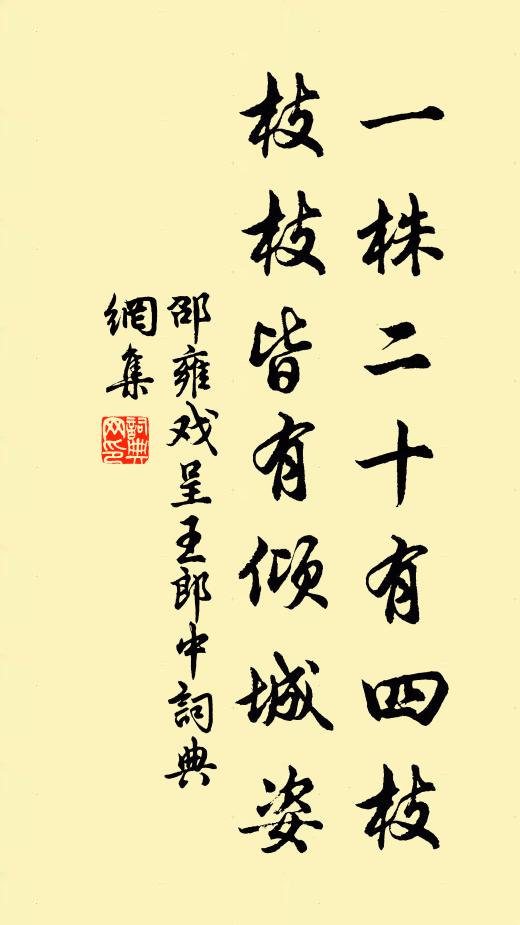 一株二十有四枝
枝枝皆有倾城姿
邵雍戏呈王郎中詞典
網集
詞典網印